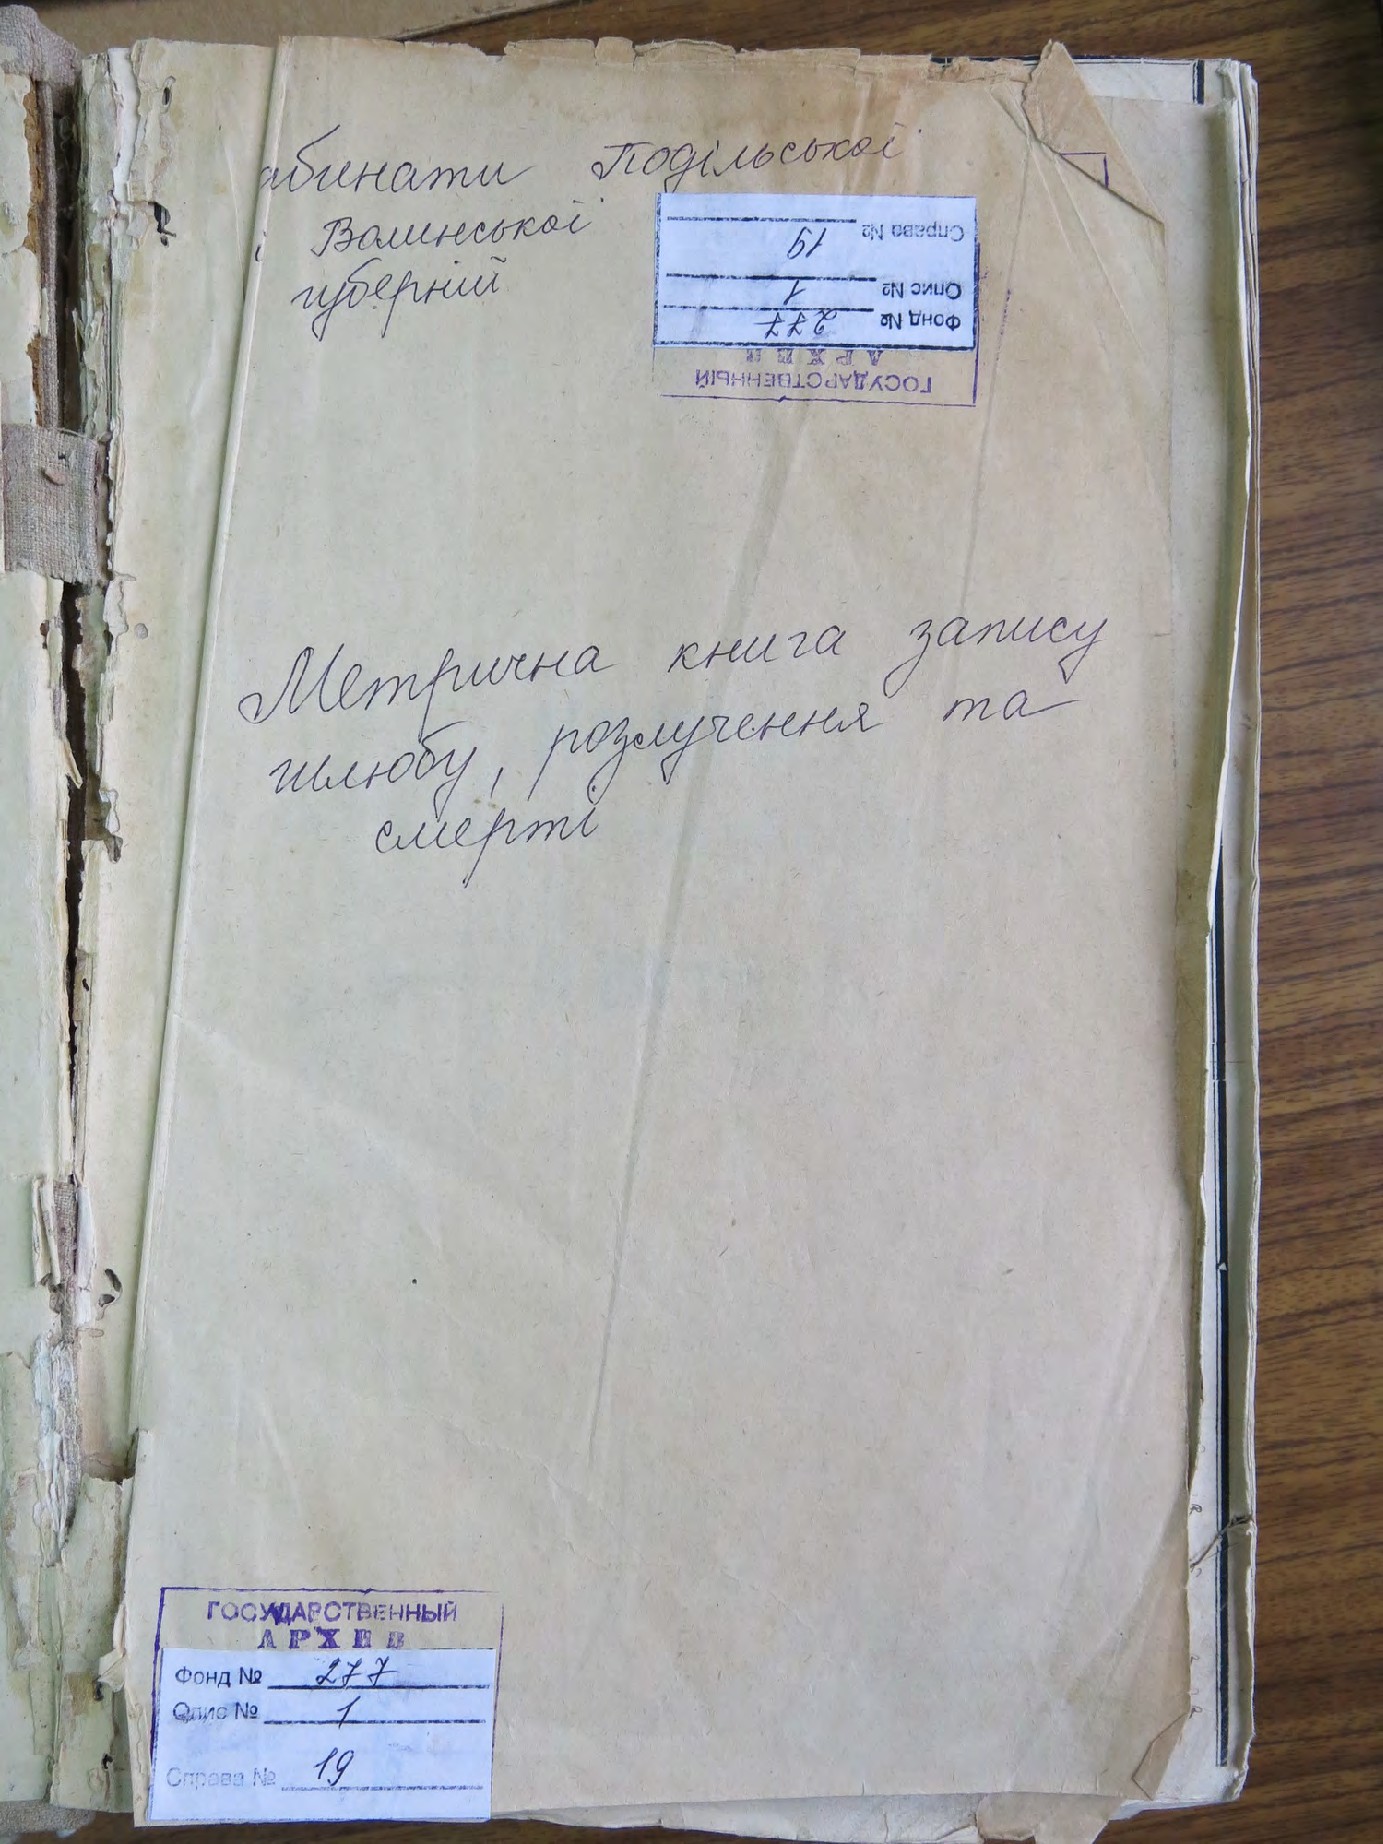 абинати Подільської
і Волинської
губерній
Справа № 19
Опис № 1
Фонд № 277
АРХИВ
ГОСУДАРСТВЕННЫЙ
Метрична книга запису
шлюбу, розлучення та
смерті
ГОСУДАРСТВЕННЫЙ
АРХИВ
Фонд № 277
Опис № 1
Справа № 19